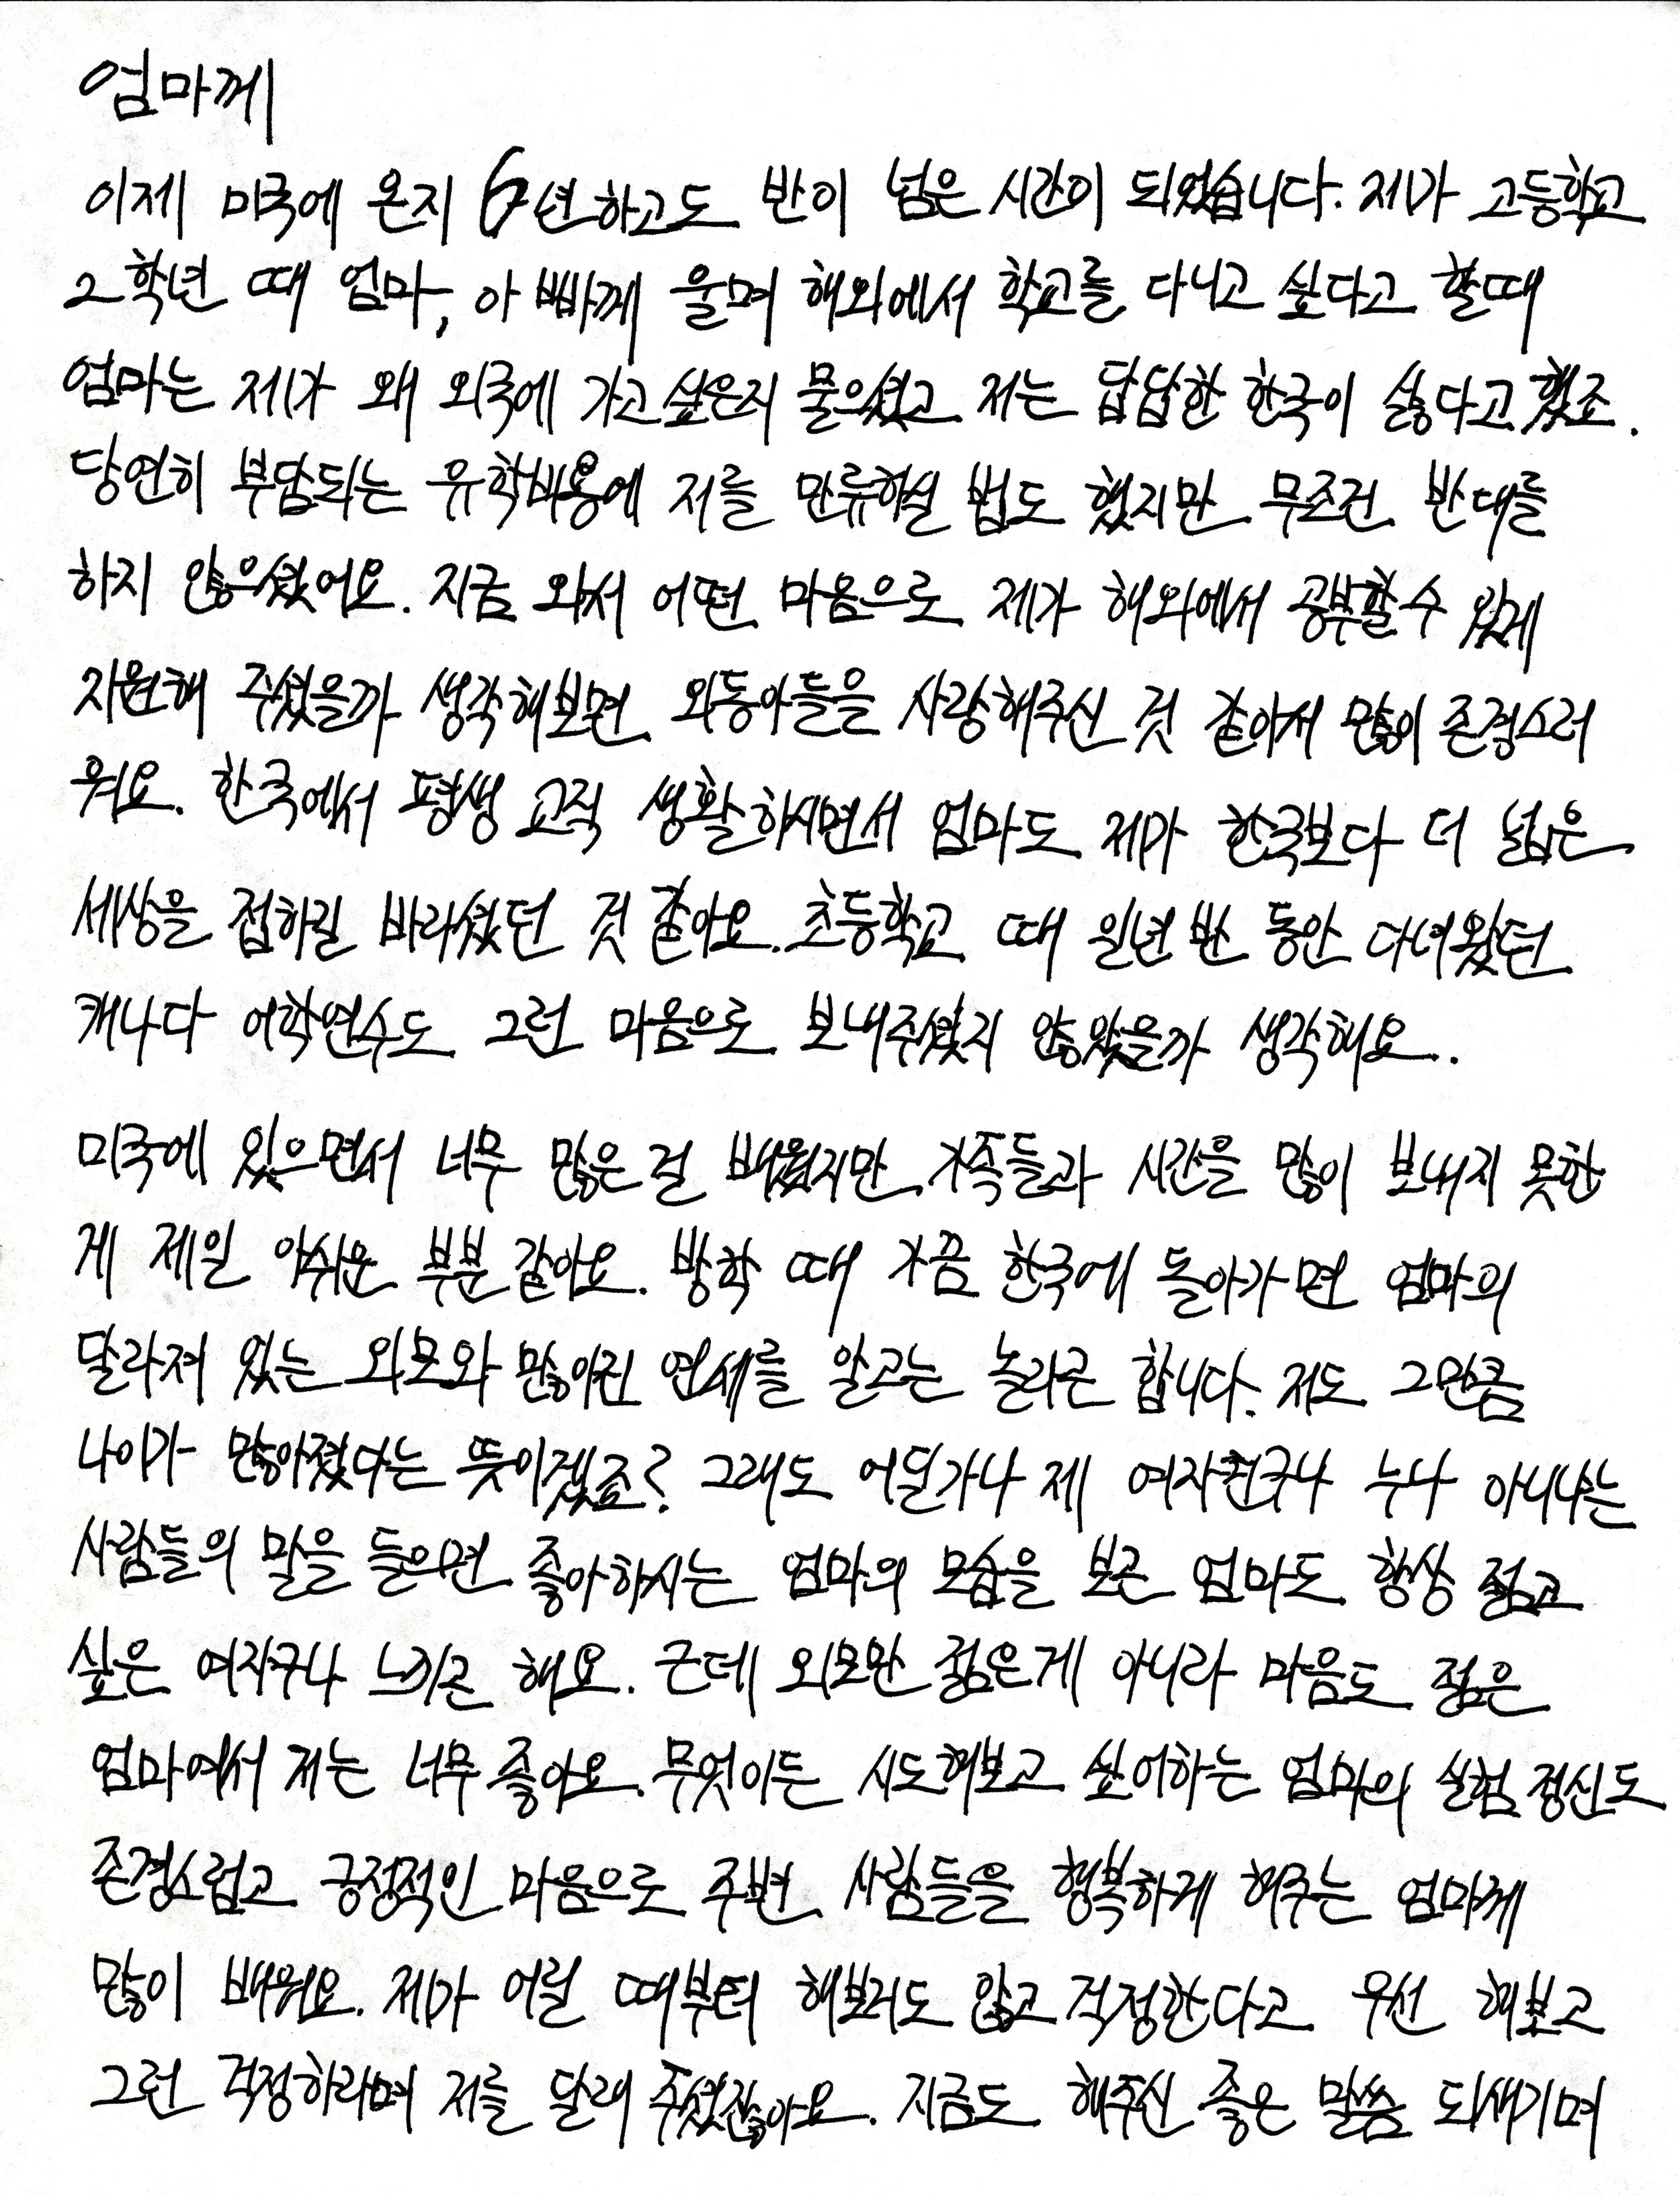 엄마께
이제 미국에 온지 6년하고도 반이 넘은 시간이 되었습니다. 제가 고등학교
2학년 때 엄마, 아빠께 울며 해외에서 학교를 다니고 싶다고 할때
엄마는 제가 왜 외국에 가고싶은지 물으셨고 저는 답답한 한국이 싫다고 했죠.
당연히 부담되는 유학비용에 저를 만류하실 법도 했지만 무조건 반대를
하지 않으셨어요. 지금 와서 어떤 마음으로 제가 해외에서 공부할수 있게
지원해 주셨을까 생각해보면 외동아들을 사랑해주신 것 같아서 많이 존경스러
워요. 한국에서 평생 교직 생활하시면서 엄마도 제가 한국보다 더 넓은
세상을 접하길 바라셨던 것 같아요. 초등학교 때 일년 반 동안 다녀왔던
캐나다 어학연수도 그런 마음으로 보내주셨지 않았을까 생각해요..
미국에 있으면서 너무 많은 걸 배웠지만 가족들과 시간을 많이 보내지 못한
게 제일 아쉬운 부분 같아요. 방학 때 가끔 한국에 돌아가면 엄마의
달라져 있는 외모와 많아진 연세를 알고는 놀라곤 합니다. 저도 그만큼
나이가 많아졌다는 뜻이겠죠? 그래도 어딜가나 제 여자친구나 누나 아니냐는
사람들의 말을 들으면 좋아하시는 엄마의 모습을 보곤 엄마도 항상 젊고
싶은 여자구나 느끼곤 해요. 근데 외모만 젊은게 아니라 마음도 젊은
엄마여서 저는 너무 좋아요. 무엇이든 시도해보고 싶어하는 엄마의 실험 정신도
존경스럽고 긍정적인 마음으로 주변 사람들을 행복하게 해주는 엄마께
많이 배워요. 제가 어릴 때부터 해보지도 않고 걱정한다고 우선 해보고
그런 걱정하라며 저를 달래 주셨잖아요. 지금도 해주신 좋은 말씀 되새기며